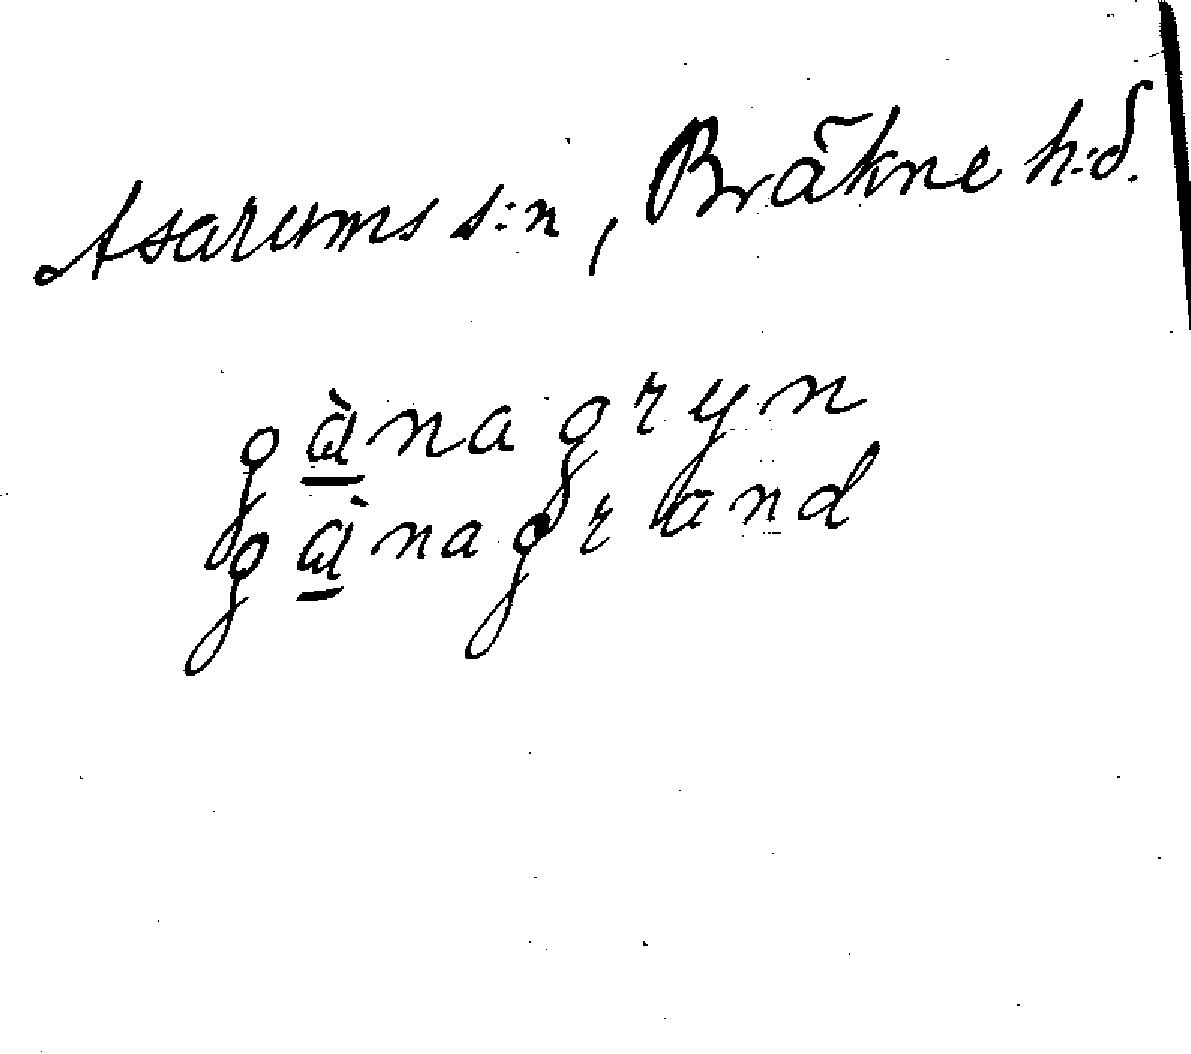 Asarums s:n, Bräkne h:d.
gànagryn
gànagrand